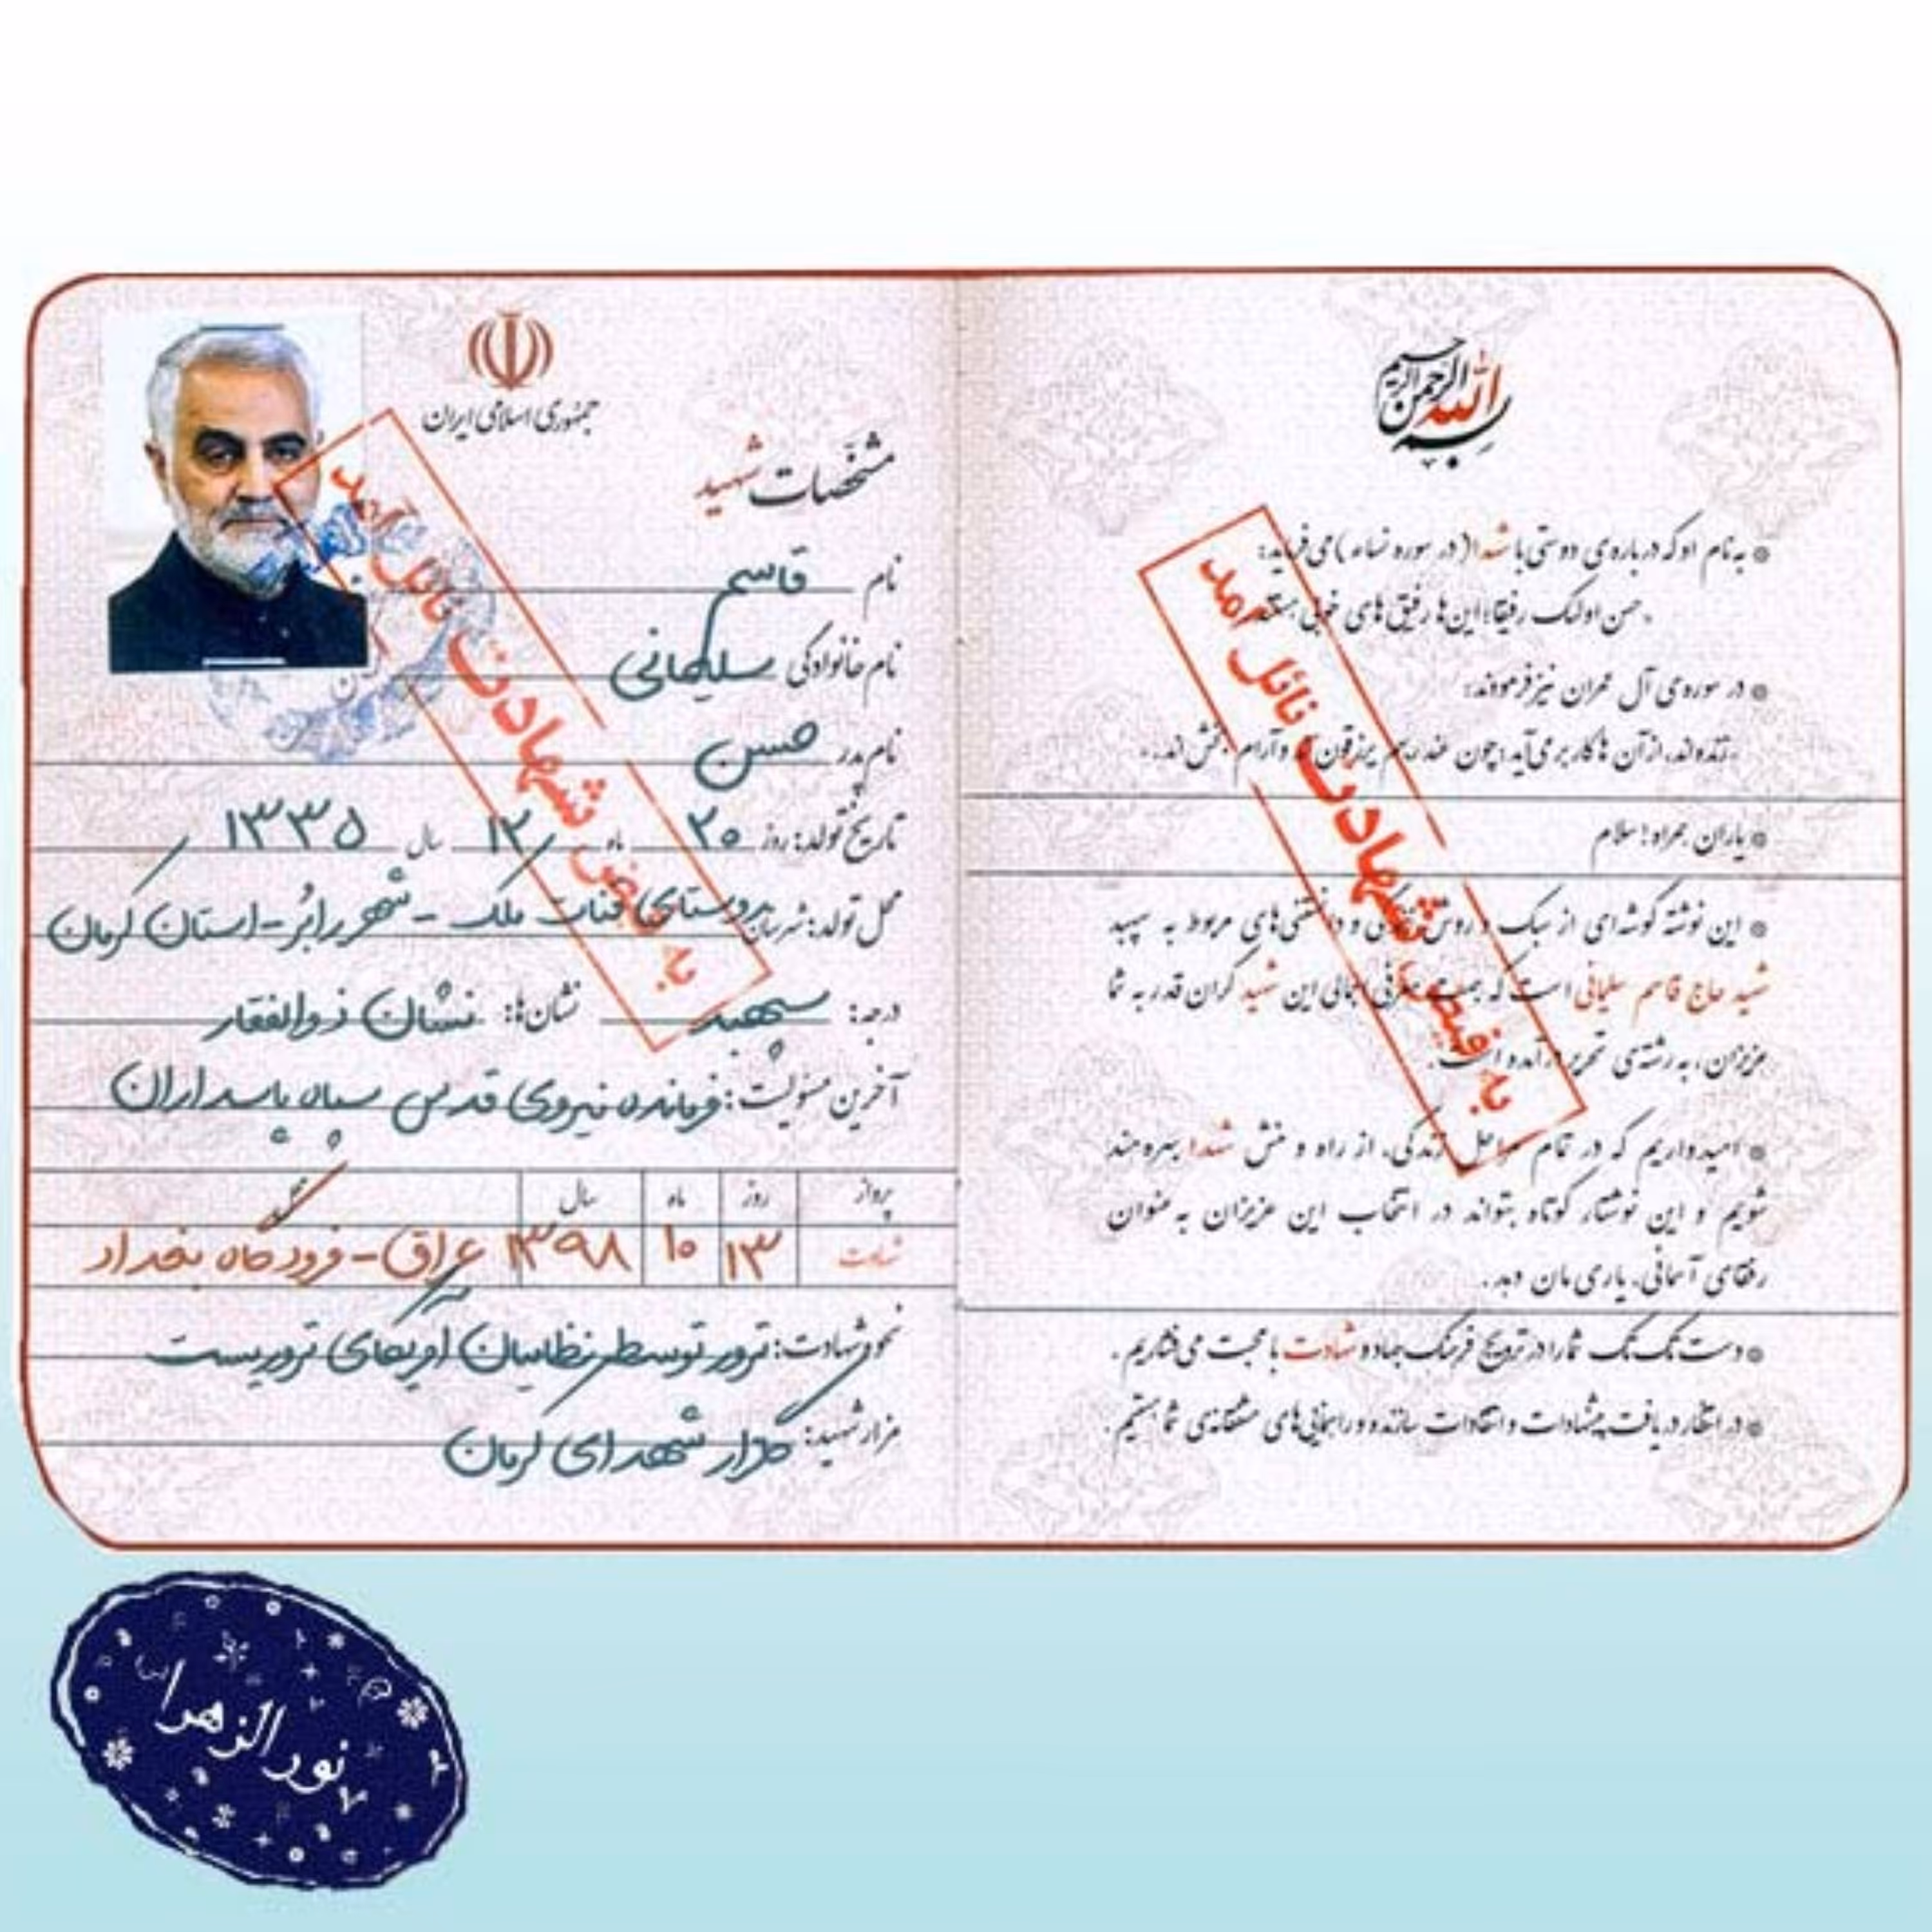 بسم الله الرحمن الرحیم
به نام او که درباره‌ی دوستی با شهدا (در سوره نساء) می‌فرماید:
حسن اولئک رفیقا؛ این‌ها رفیق‌های خوبی هستند
در سوره‌ی آل عمران نیز فرمودند:
زنده‌اند، از آن ها کار بر می‌آید؛ چون عند ربهم یرزقون‌ند و آرام بخش‌اند.
یاران همراه؛ سلام
این نوشته گوشه‌ای از سبک و روش زندگی و دانستنی‌های مربوط به سپهبد
شهید حاج قاسم سلیمانی است که به جهت معرفی اجمالی این شهید گران قدر به شما
عزیزان، به رشته‌ی تحریر درآمده است.
امیدواریم که در تمام مراحل زندگی، از راه و منش شهدا بهره‌مند
شویم و این نوشتار کوتاه بتواند در انتخاب این عزیزان به عنوان
رفقای آسمانی، یاری مان دهد.
دست تک تک شما را در ترویج فرهنگ جهاد و شهادت با محبت می فشاریم.
در انتظار دریافت پیشنهادات و انتقادات سازنده و راهنمایی‌های مشفقانه‌ی شما هستیم.
به فیض شهادت نائل آمد
جمهوری اسلامی ایران
مشخصات شهید
نام قاسم
نام خانوادگی سلیمانی
نام پدر حسن
تاریخ تولد: روز ۲۰ ماه ۱۲ سال ۱۳۳۵
محل تولد: شهرستان روستای قنات ملک - شهر رابُر - استان کرمان
درجه: سپهبد نشان‌ها: نشان ذوالفقار
آخرین مسئولیت: فرمانده نیروی قدس سپاه پاسداران
پرواز روز ماه سال
شهادت ۱۳ ۱۰ ۱۳۹۸ عراق - فرودگاه بغداد
نحوه شهادت: ترور توسط نظامیان آمریکای تروریست
مزار شهید: گلزار شهدای کرمان
به فیض شهادت نائل آمد
نورالزهرا